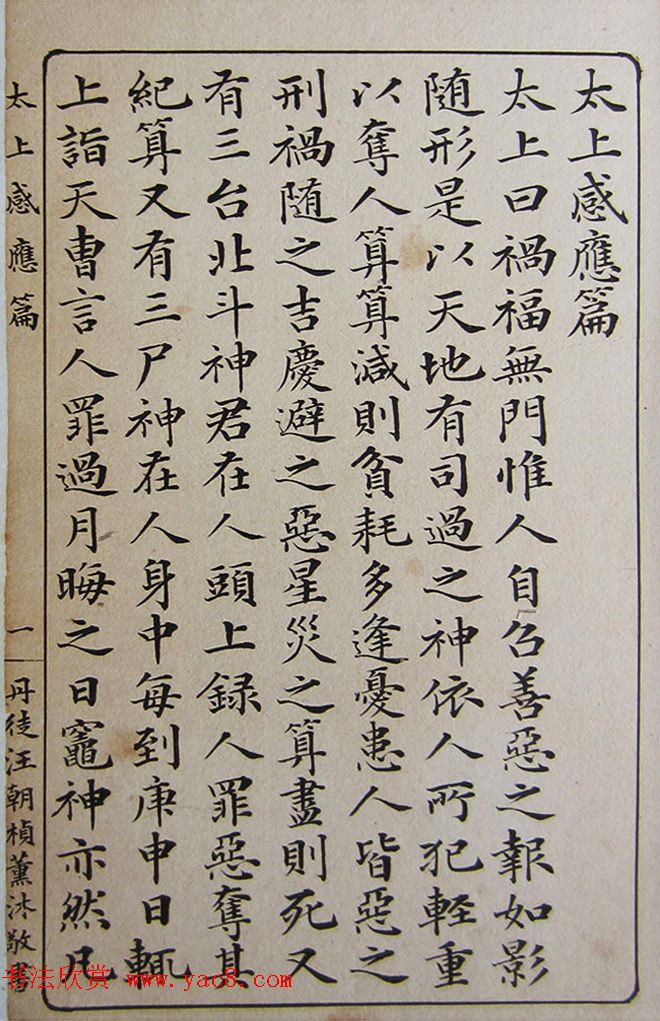 太上感應篇
太上曰禍福無門惟人自召善惡之報如影
随形是以天地有司過之神依人所犯輕重
以奪人算算減則貧耗多逢憂患人皆惡之
刑禍随之吉慶避之惡星災之算盡則死又
有三台北斗神君在人頭上録人罪惡奪其
紀算又有三尸神在人身中每到庚申日輒
上詣天曹言人罪過月晦之日竈神亦然凡
太上感應篇
一
丹徒汪朝楨薰沐敬書
书法欣赏 www.yac8.com